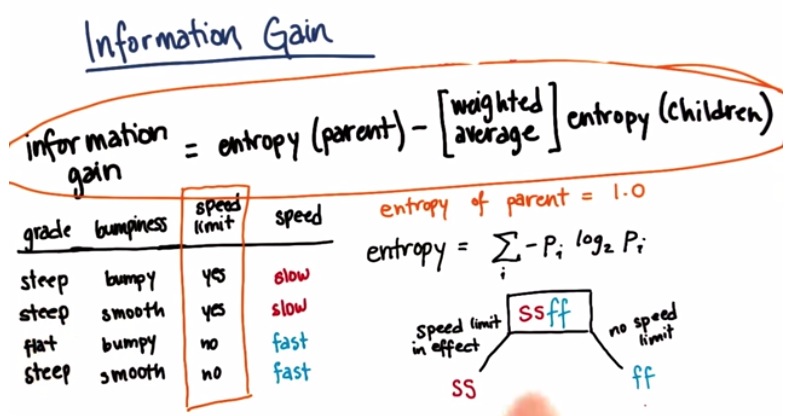 Information Gain
information gain = entropy (parent) - [weighted average] entropy (children)
grade bumpiness speed limit speed
steep bumpy yes slow
steep smooth yes slow
flat bumpy no fast
steep smooth no fast
entropy of parent = 1.0
entropy = Σ_i -P_i log₂ P_i
speed limit in effect
ssff
no speed limit
ss
ff